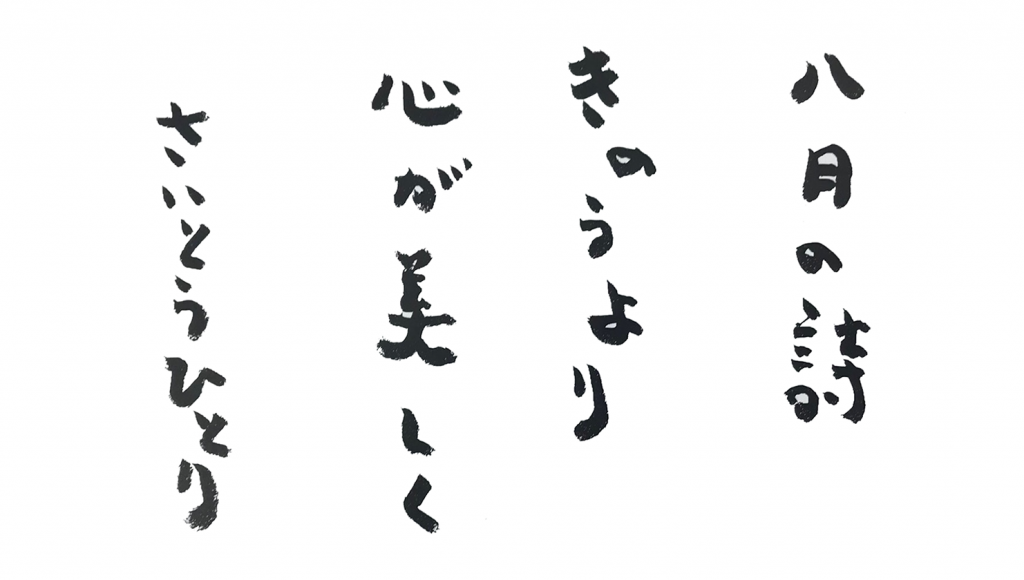 八月の詩
きのうより
心が美しく
さいとうひとり